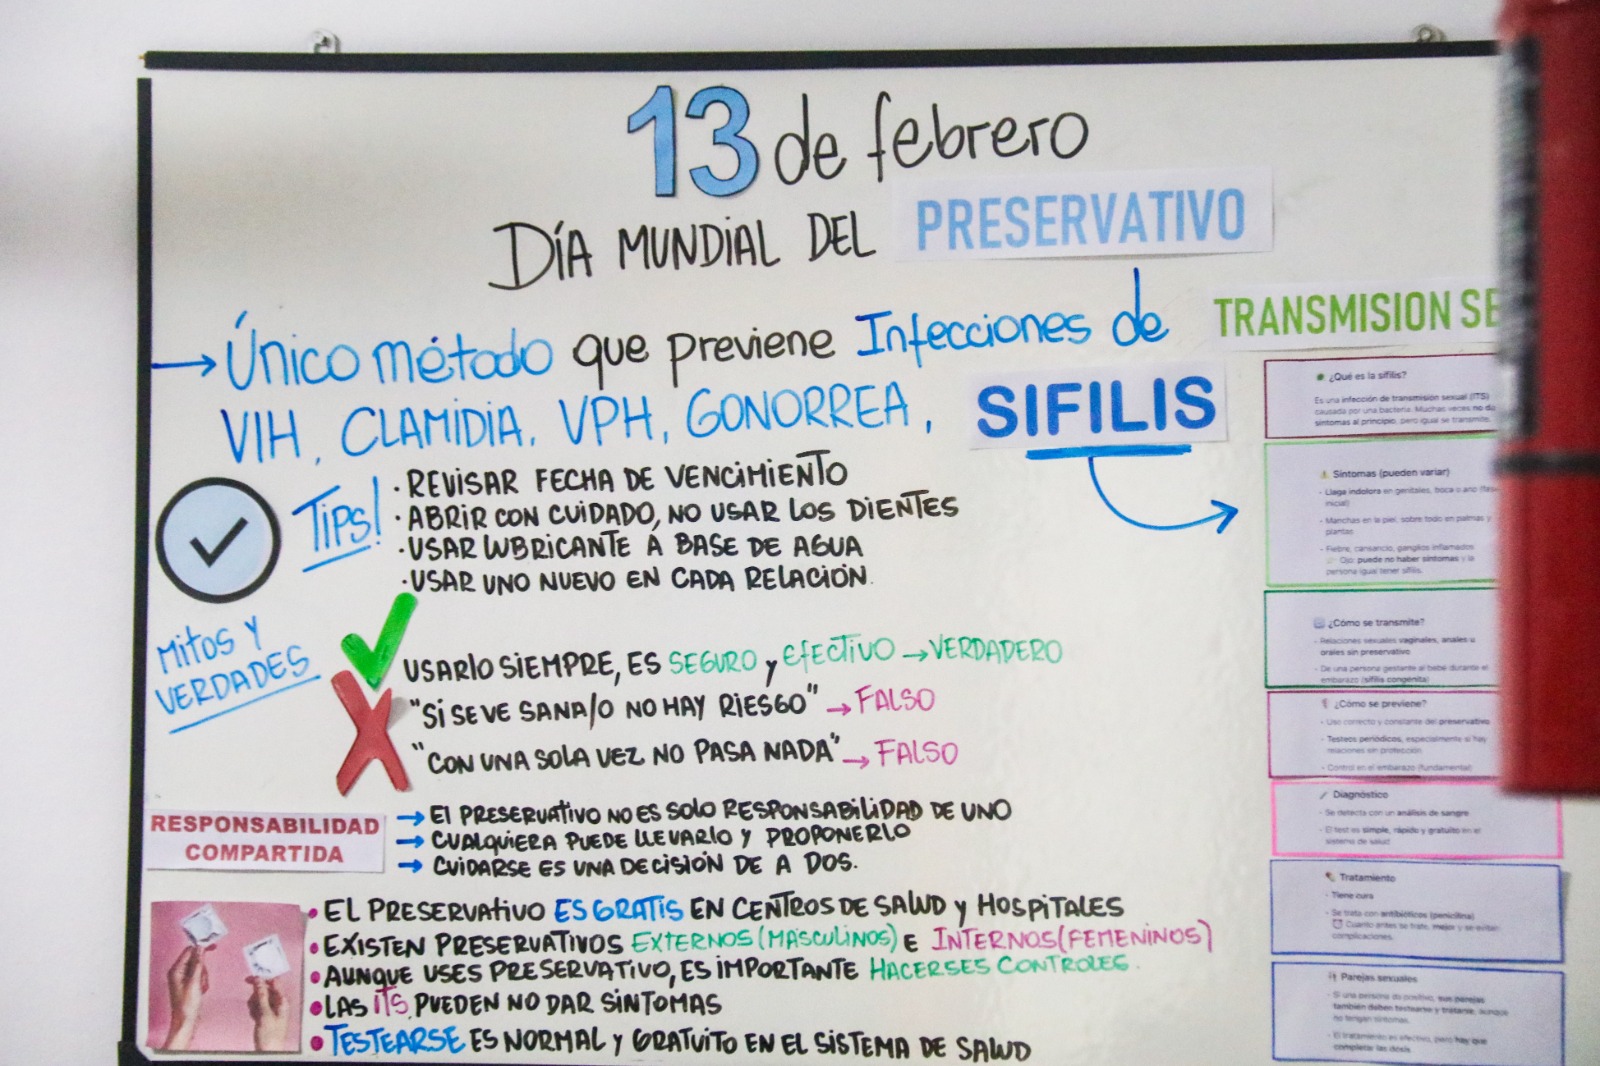 13 de febrero
DÍA MUNDIAL DEL PRESERVATIVO
→ Único método que previene Infecciones de TRANSMISION SE
VIH, CLAMIDIA, VPH, GONORREA, SIFILIS
TIPS!
· REVISAR FECHA DE VENCIMIENTO
· ABRIR CON CUIDADO, NO USAR LOS DIENTES
· USAR LUBRICANTE A BASE DE AGUA
· USAR UNO NUEVO EN CADA RELACIÓN.
MITOS Y
VERDADES
USARLO SIEMPRE, ES SEGURO y EFECTIVO → VERDADERO
"SI SE VE SANA/O NO HAY RIESGO" → FALSO
"CON UNA SOLA VEZ NO PASA NADA" → FALSO
RESPONSABILIDAD
COMPARTIDA
→ El PRESERVATIVO NO ES SOLO RESPONSABILIDAD DE UNO
→ CUALQUIERA PUEDE LLEVARLO Y PROPONERLO
→ CUIDARSE ES UNA DECISIÓN DE A DOS.
• EL PRESERVATIVO ES GRATIS EN CENTROS DE SALUD y HOSPITALES
• EXISTEN PRESERVATIVOS EXTERNOS (MASCULINOS) E INTERNOS (FEMENINOS)
• AUNQUE USES PRESERVATIVO, ES IMPORTANTE HACERSES CONTROLES.
• LAS ITS PUEDEN NO DAR SINTOMAS
• TESTEARSE ES NORMAL y GRATUITO EN EL SISTEMA DE SALUD
¿Qué es la sífilis?
Es una infección de transmisión sexual (ITS)
causada por una bacteria. Muchas veces no da
síntomas al principio, pero igual se transmite.
Síntomas (pueden variar)
· Llaga indolora en genitales, boca o ano
inicial)
· Manchas en la piel, sobre todo en palmas y
plantas
· Fiebre, cansancio, ganglios inflamados
Ojo: puede no haber síntomas y la
persona igual tener sífilis.
¿Cómo se transmite?
· Relaciones sexuales vaginales, anales u
orales sin preservativo
· De una persona gestante al bebé durante el
embarazo (sífilis congénita)
¿Cómo se previene?
· Uso correcto y constante del preservativo
· Testeos periódicos, especialmente si hay
relaciones sin protección
· Control en el embarazo (fundamental)
Diagnóstico
· Se detecta con un análisis de sangre
· El test es simple, rápido y gratuito en el
sistema de salud
Tratamiento
· Tiene cura
· Se trata con antibióticos (penicilina)
Cuanto antes se trate, mejor y se evitan
complicaciones.
Parejas sexuales
· Si una persona da positivo, sus parejas
también deben testearse y tratarse, aunque
no tengan síntomas.
· El tratamiento es efectivo, pero hay que
completar las dosis